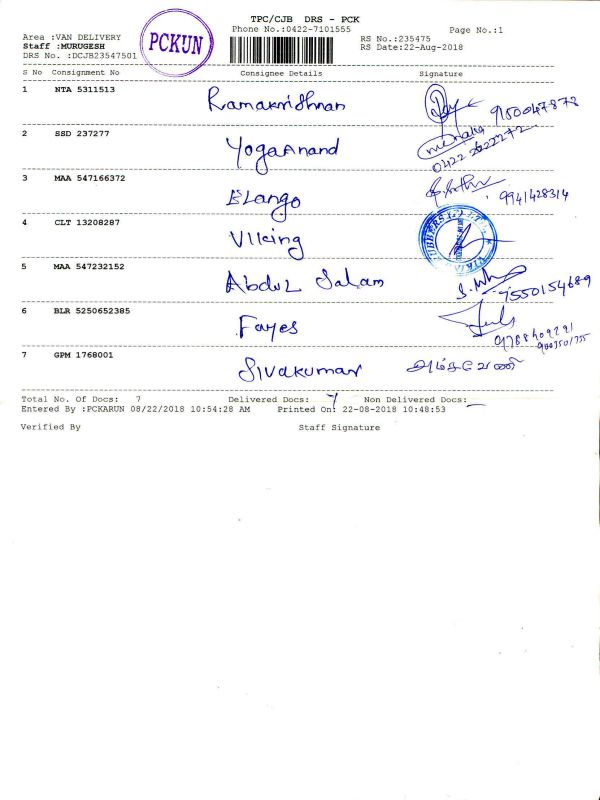 TPC/CJB DRS - PCK
Phone No.:0422-7101555
Page No.:1
Area :VAN DELIVERY
Staff :MURUGESH
DRS No. :DCJB23547501
PCKUN
RS No.:235475
RS Date:22-Aug-2018
S No Consignment No Consignee Details Signature
1 NTA 5311513 Ramakrishnan 9150047878
2 SSD 237277 YogaAnand menaka 0422 2622272
3 MAA 547166372 Elango 9941428314
4 CLT 13208287 Viking
5 MAA 547232152 Abdul Salam 7550154689
6 BLR 5250652385 Fayes
7 GPM 1768001 Sivakumar
Total No. Of Docs: 7 Delivered Docs: 7 Non Delivered Docs:
Entered By :PCKARUN 08/22/2018 10:54:28 AM Printed On: 22-08-2018 10:48:53
Verified By Staff Signature